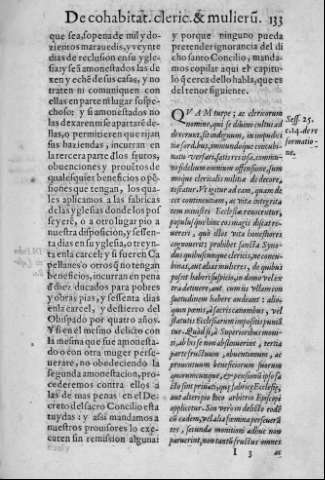 De cohabitat. cleric. & mulierũ. 133
que sea, so pena de mil y do-
zientos marauedis, y veynte
dias de reclusion en su ygle-
sia: y seã amonestados las de
xen y eche de sus casas, y no
traten ni comuniquen con
ellas en parte ni lugar sospe-
choso: y si amonestados no
las dexaren ni se apartarẽ de-
llas, o permitieren que rijan
sus haziendas, incurran en
la tercera parte d̃los frutos,
obuenciones y prouẽtos de
qualesquier beneficios o pẽ-
siones que tengan, los qua-
les aplicamos a las fabricas
de las yglesias donde los pos
seyerẽ, o a otro lugar pio a
nuestra disposiciõ, y sessen-
ta dias en su yglesia, o treyn
ta en la carcel: y si fueren Ca
pellanes o otros q̃ no tengan
beneficios, incurran en pena
d̃ diez ducados para pobres
y obras pias, y sessenta dias
en la carcel, y destierro del
Obispado por quatro años.
Y si en el mesmo delicto con
la mesma que fue amonesta-
do o con otra muger perse-
uerare, no obedeciendo la
segunda amonestacion, pro-
cederemos contra ellos a
las de mas penas en el De-
creto del sacro Concilio esta
tuydas: y assi mandamos a
nuestros prouisores lo exe-
cuten sin remission alguna:
y porque ninguno pueda
pretender ignorancia del di
cho santo Concilio, manda-
mos copilar aqui el capitu-
lo q̃ cerca dello habla, que es
del tenor siguiente.
QVAM turpe; ac clericorum
nomine, qui se diuino cultui ad
dixerunt, sit indignum, in impudici
tiæ sordibus, immundoque contuber-
natu versari, satis res ipsa, commu-
ni fidelium omnium offensione, sum
moque clericalis militiæ dedecore,
testatur. Vt igitur ad eam, quam de
cet continentiam, ac vitæ integrita
tem ministri Ecclesiæ reuocentur,
populusque hinc eos magis discat re-
uereri, quò illos vita honestiores
cognouerit: prohibet sancta Syno-
dus quibuscunque clericis, ne concu-
binas, aut alias mulieres, de quibus
posset haberi suspicio, in domo vel ex
tra detinere, aut cum iis vllam con
suetudinem habere audeant: alio-
quin pœnis, à sacris canonibus, vel
statutis Ecclesiarum impositis puniã
tur. Quòd si, à Superioribus moni-
ti, ab iis se non abstinuerint, tertia
parte fructuum, obuentionum, ac
prouentuum beneficiorum suorum
quorumcunque, & pensionũ ipso fa
cto sint priuati, quæ fabricæ Ecclesiæ,
aut alteri pio loco arbitrio Episcopi
applicetur. Sin verò in delicto eodẽ
cũ eadem, vel alia fœmina perseuerã
tes, secundæ monitioni adhuc non
paruerint, non tantũ fructus omnes
Sess. 25.
c. 14. de re
formatio-
ne.
I 3 ac